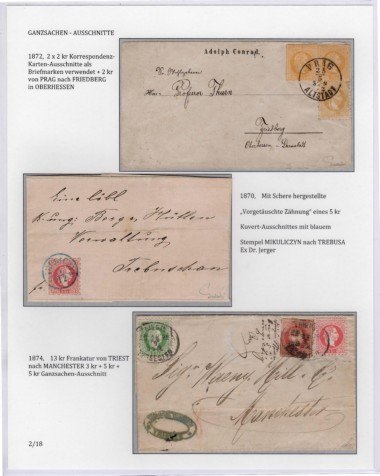 GANZSACHEN - AUSSCHNITTE
1872, 2 x 2 kr Korrespondenz-
Karten-Ausschnitte als
Briefmarken verwendet + 2 kr
von PRAG nach FRIEDBERG
in OBERHESSEN
Adolph Conrad.
PRAG
ALTSTADT
Friedberg
1870, Mit Schere hergestellte
„Vorgetäuschte Zähnung" eines 5 kr
Kuvert-Ausschnittes mit blauem
Stempel MIKULICZYN nach TREBUSA
Ex Dr. Jerger
Eine löbl
Verwaltung
1874, 13 kr Frankatur von TRIEST
nach MANCHESTER 3 kr + 5 kr +
5 kr Ganzsachen-Ausschnitt
Manchester
2/18